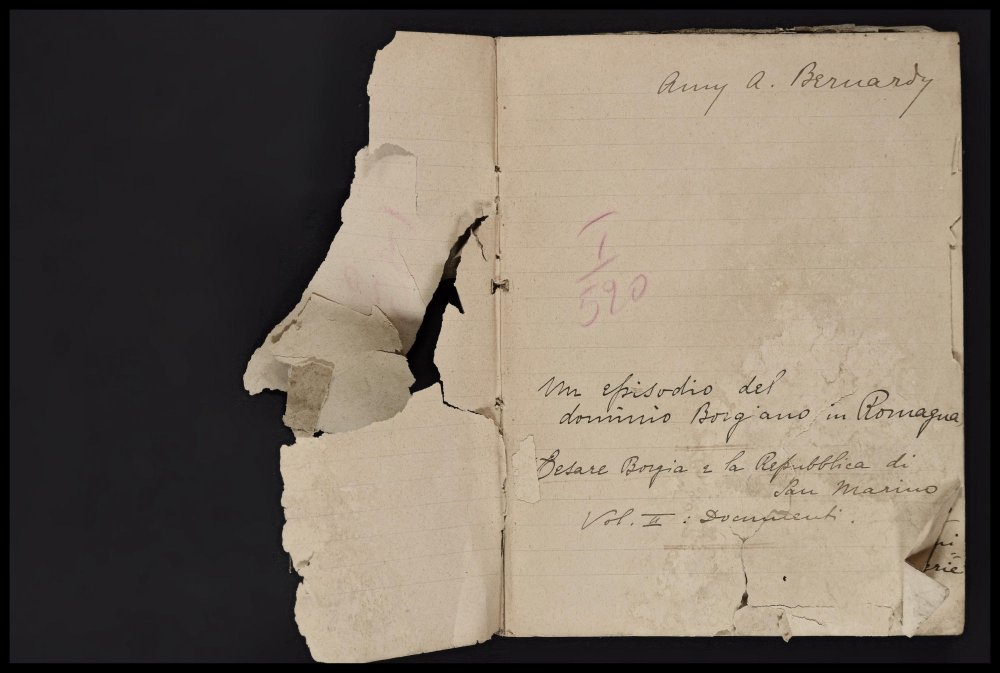 Amy A. Bernardy
I
590
Un episodio del
dominio Borgiano in Romagna
Cesare Borgia e la Repubblica di
San Marino
Vol. II : Documenti.